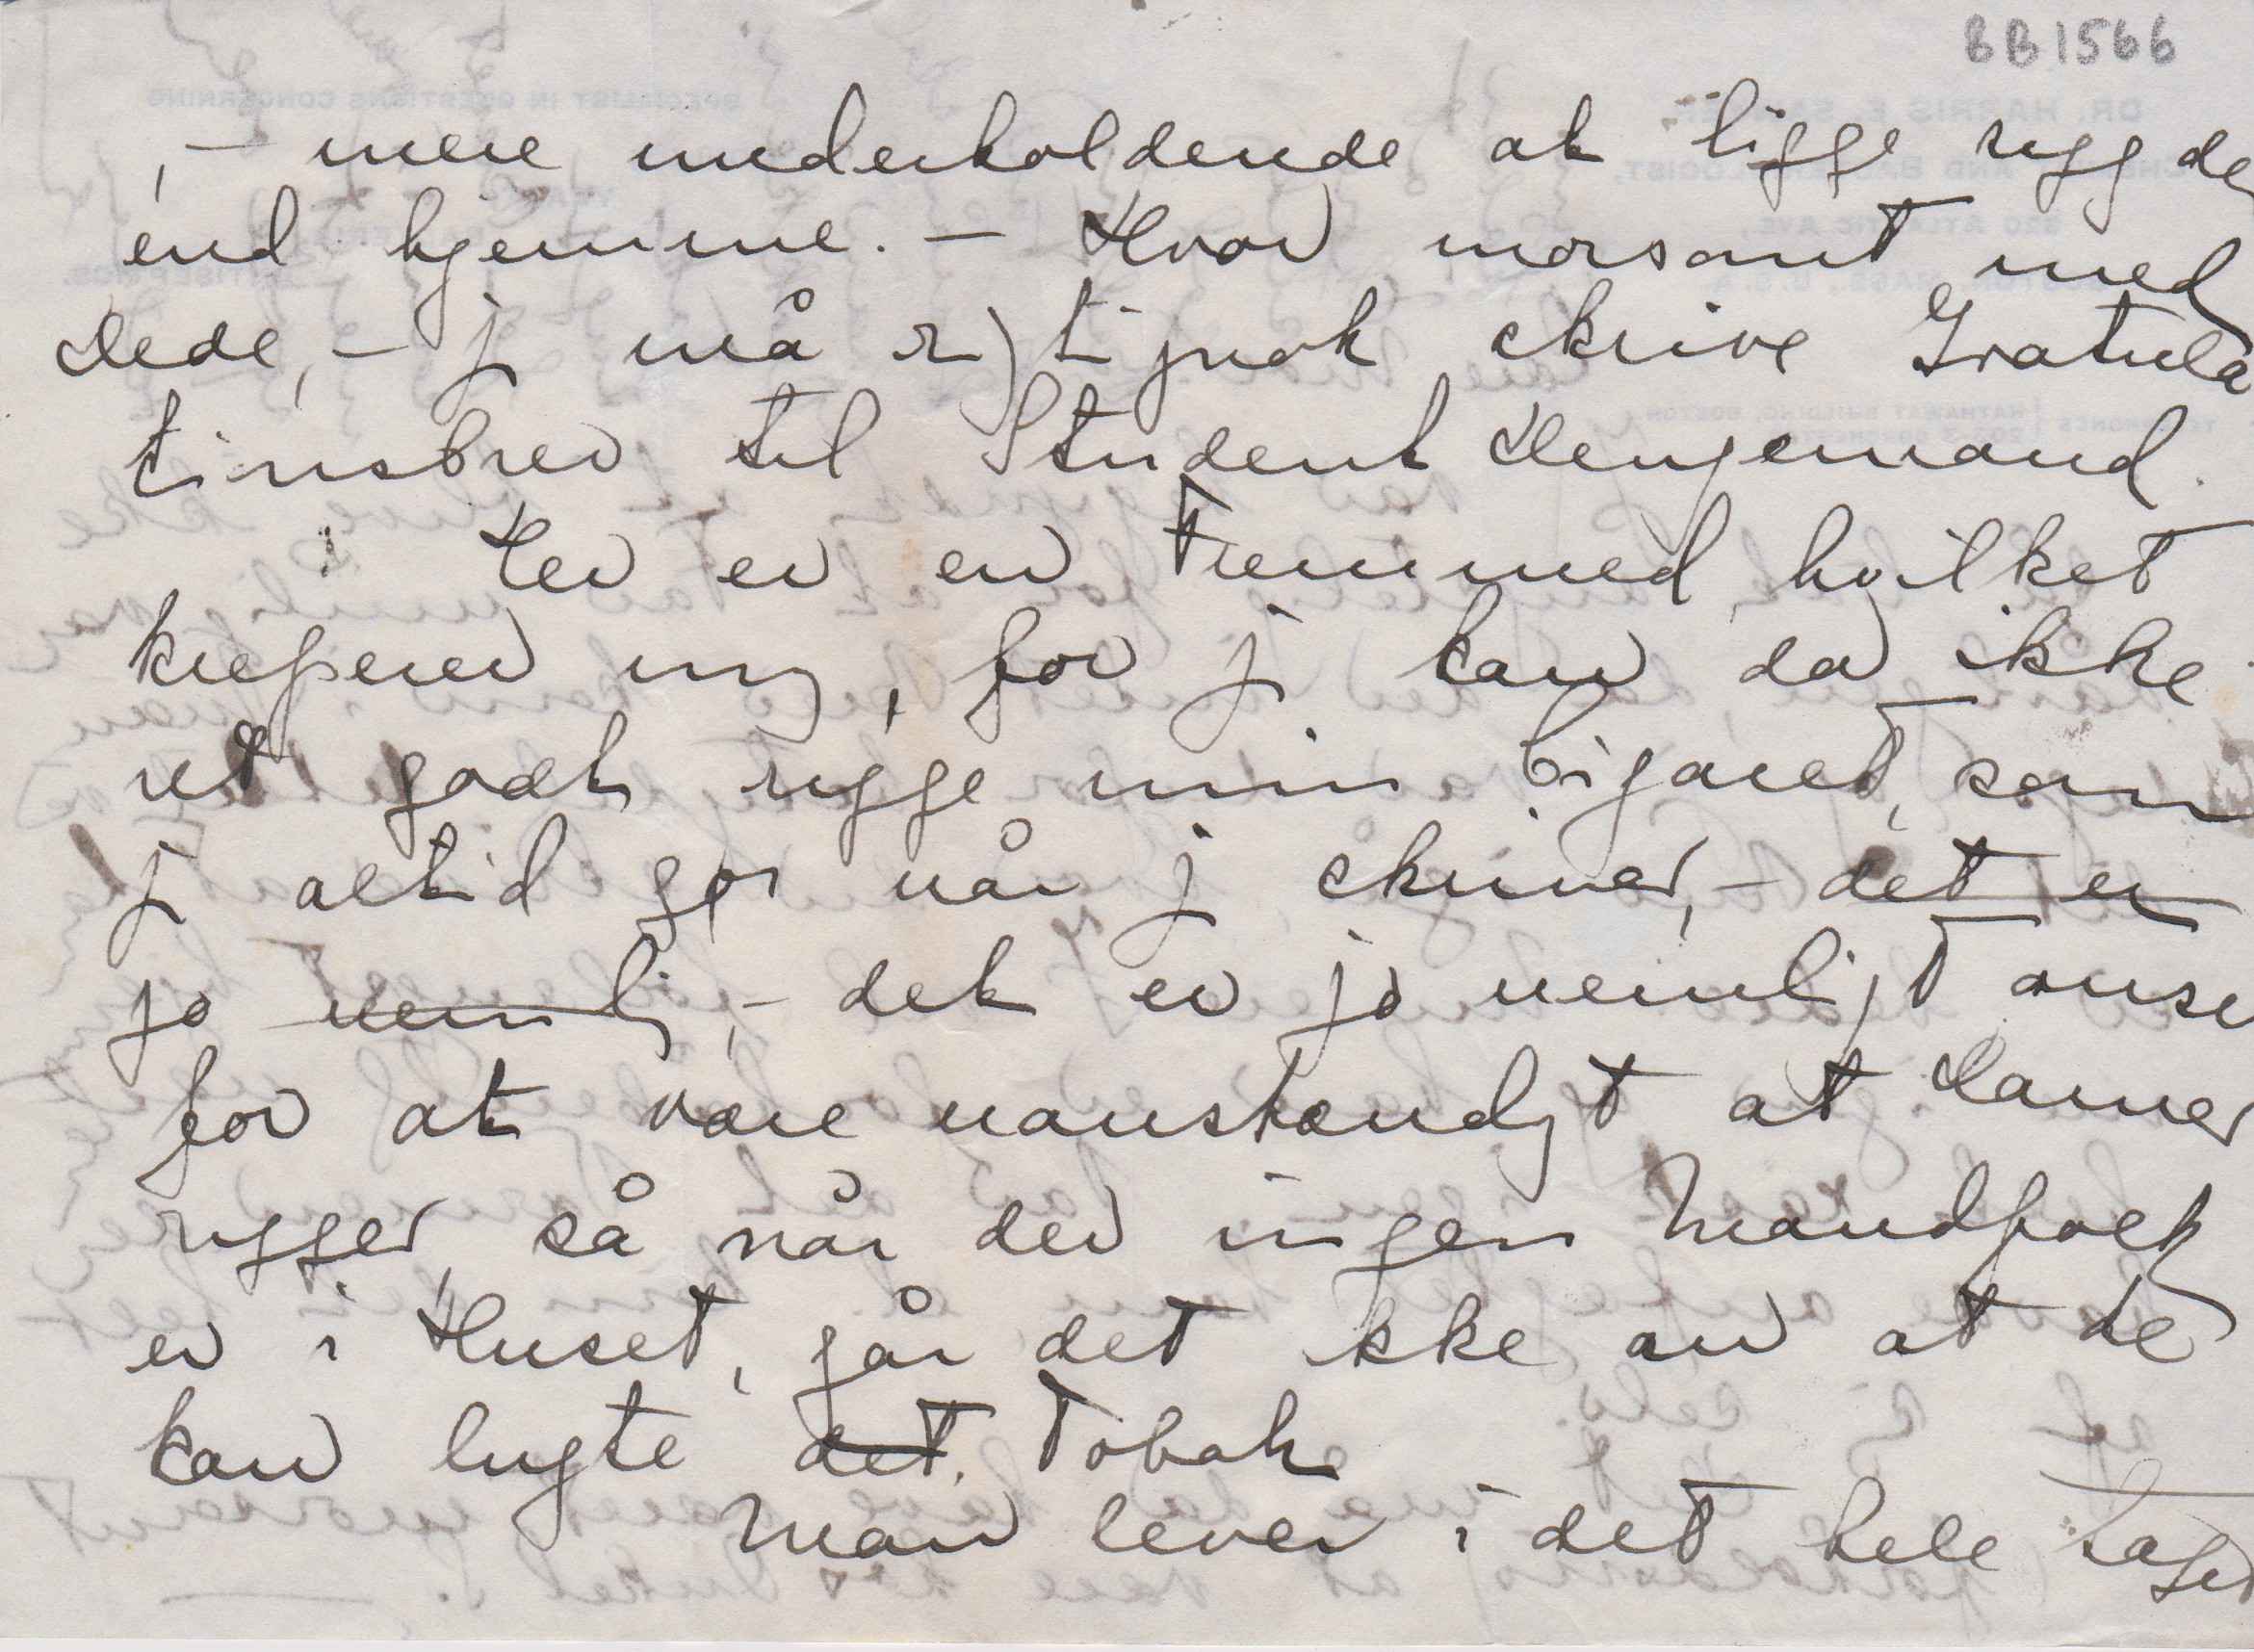 BB1566
,- mere underholdende at ligge syg der
end hjemme. - Hvor morsomt med
Dede, - j må r) ti jnok skrive Gratula
tinsbrev til Student Hengemand.
Her er en Fremmed, hvilket
kreperer mig, for j kan da ikke
ret godt ryge min Cigaret, som
j altid gør når j skriver, - det er
jo nemli, - det er jo nemligt anse
for at være uanstændigt at Damer
ryger, så når der ingen Mandfolk
er i Huset, går det ikke an at de
kan lugte det. Tobak
Man lever i det hele taget